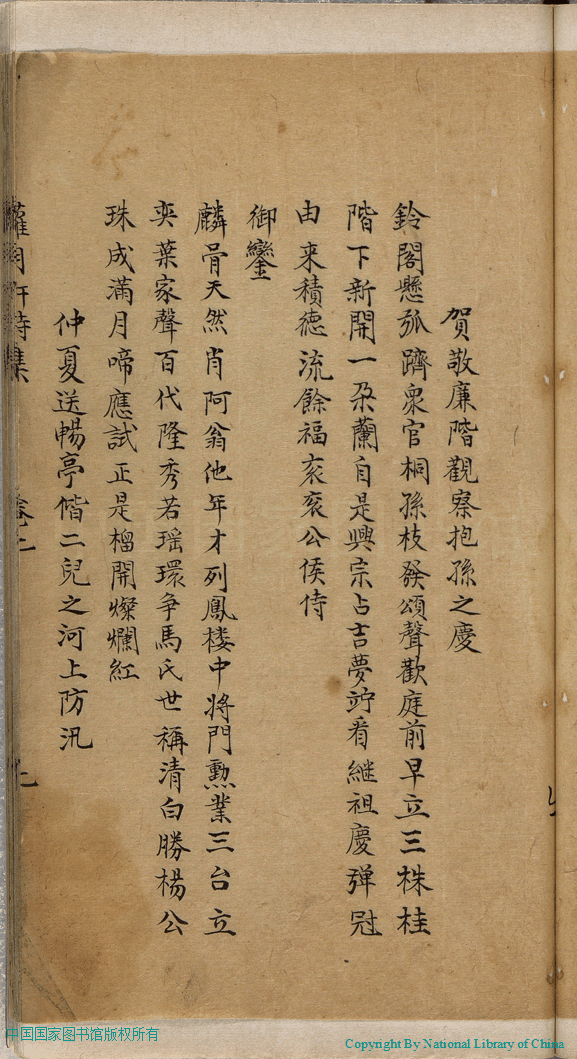 賀敬廉階觀察抱孫之慶
鈴閣懸弧躋衆官桐孫枝發頌聲歡庭前早立三株桂
階下新開一朶蘭自是興宗占吉夢竚看繼祖慶彈冠
由来積德流餘福衮衮公侯侍
御鑾
麟骨天然肖阿翁他年才列鳳楼中將門勲業三台立
奕葉家聲百代隆秀若瑶環争馬氏世稱清白勝楊公
珠成滿月啼應試正是榴開燦爛紅
仲夏送暢亭偕二兒之河上防汛
詩集
中国国家图书馆版权所有
Copyright By National Library of China